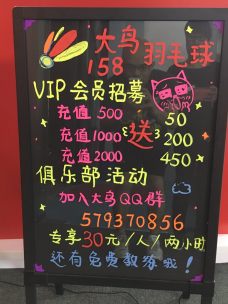 大鸟羽毛球
158
VIP会员招募
充值500 送 50
充值1000 送 200
充值2000 送 450
俱乐部活动
加入大鸟QQ群
579370856
专享30元/人/两小时
还有免费教练哦!